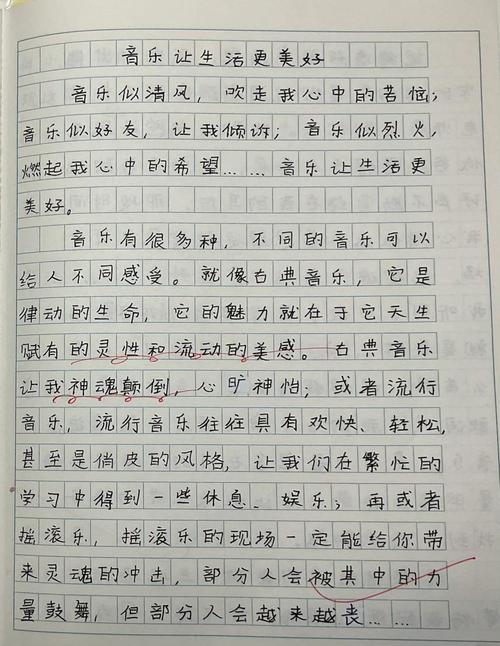 音乐让生活更美好
音乐似清风，吹走我心中的苦恼；
音乐似好友，让我倾诉；音乐似烈火，
燃起我心中的希望……音乐让生活更
美好。
音乐有很多种，不同的音乐可以
给人不同感受。就像古典音乐，它是
律动的生命，它的魅力就在于它天生
赋有的灵性和流动的美感。古典音乐
让我神魂颠倒，心旷神怡；或者流行
音乐，流行音乐往往具有欢快、轻松，
甚至是俏皮的风格，让我们在繁忙的
学习中得到一些休息、娱乐；再或者
摇滚乐，摇滚乐的现场一定能给你带
来灵魂的冲击，部分人会被其中的力
量鼓舞，但部分人会越来越丧……